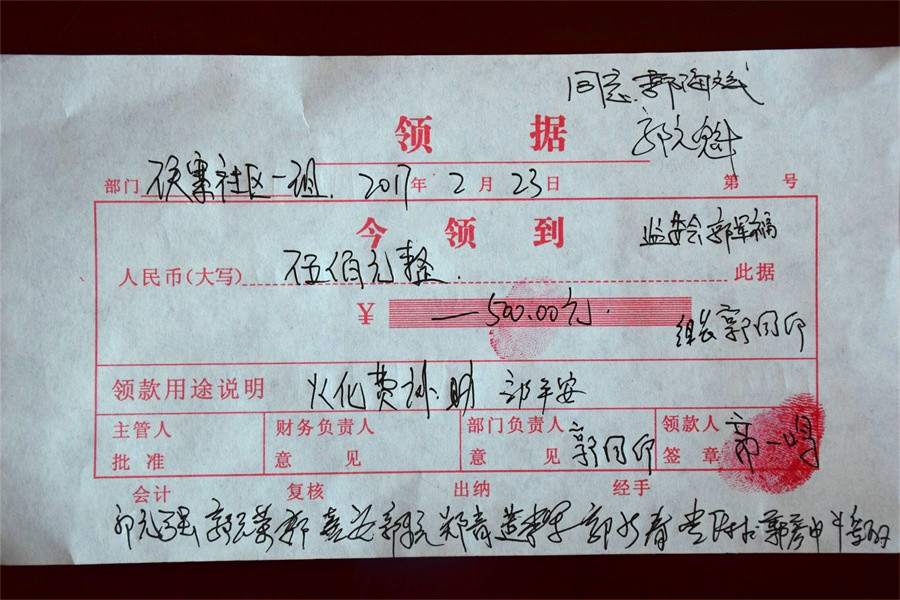 同志.郭海斌
领 据
郭元魁
部门 侯寨社区一组. 2017年 2 月 23 日 第 号
今 领 到
监委会郭军福
人民币(大写) 伍佰元整. 此据
¥ —500.00元.
组长郭同印
领款用途说明 火化费补助 郭平安
主管人 批准
财务负责人 意见
部门负责人 意见 郭同印
领款人 签章 郭一鸣
会计 复核 出纳 经手